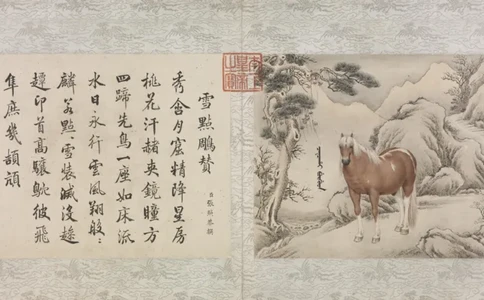 雪點鵰贊
恭撰
秀含月窟精降星房
桃花汗赭夾鏡瞳方
四蹄先鳥一座如床流
水日永行雲風翔般〻
麟若點雪裝滅沒
卬首高驤彼飛
隼庶幾頡頏